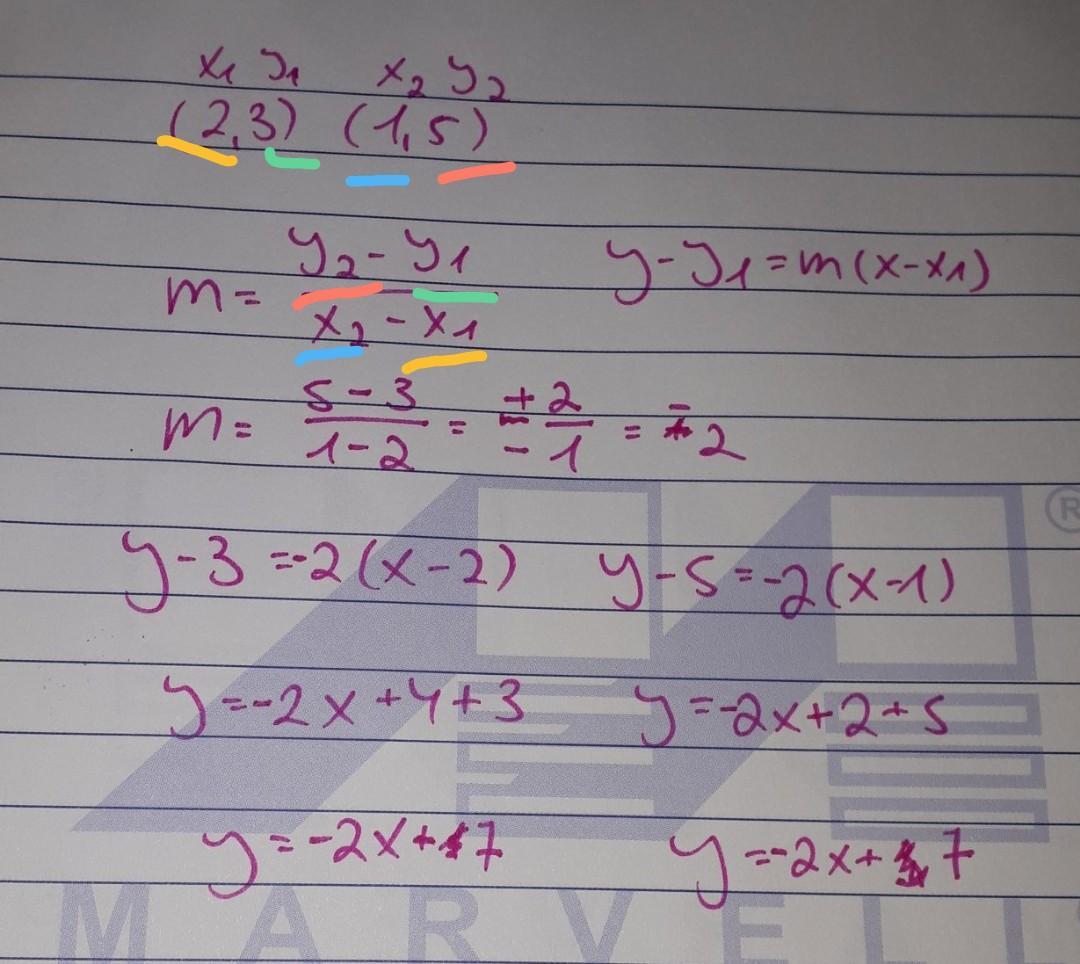 x1 y1 x2 y2
(2,3) (1,5)
m = y2 - y1 / x2 - x1 y - y1 = m(x - x1)
m = 5 - 3 / 1 - 2 = + 2 / - 1 = - 2
y - 3 = -2(x - 2) y - 5 = -2(x - 1)
y = -2x + 4 + 3 y = -2x + 2 + 5
y = -2x + 7 y = -2x + 7
®
MARVEL